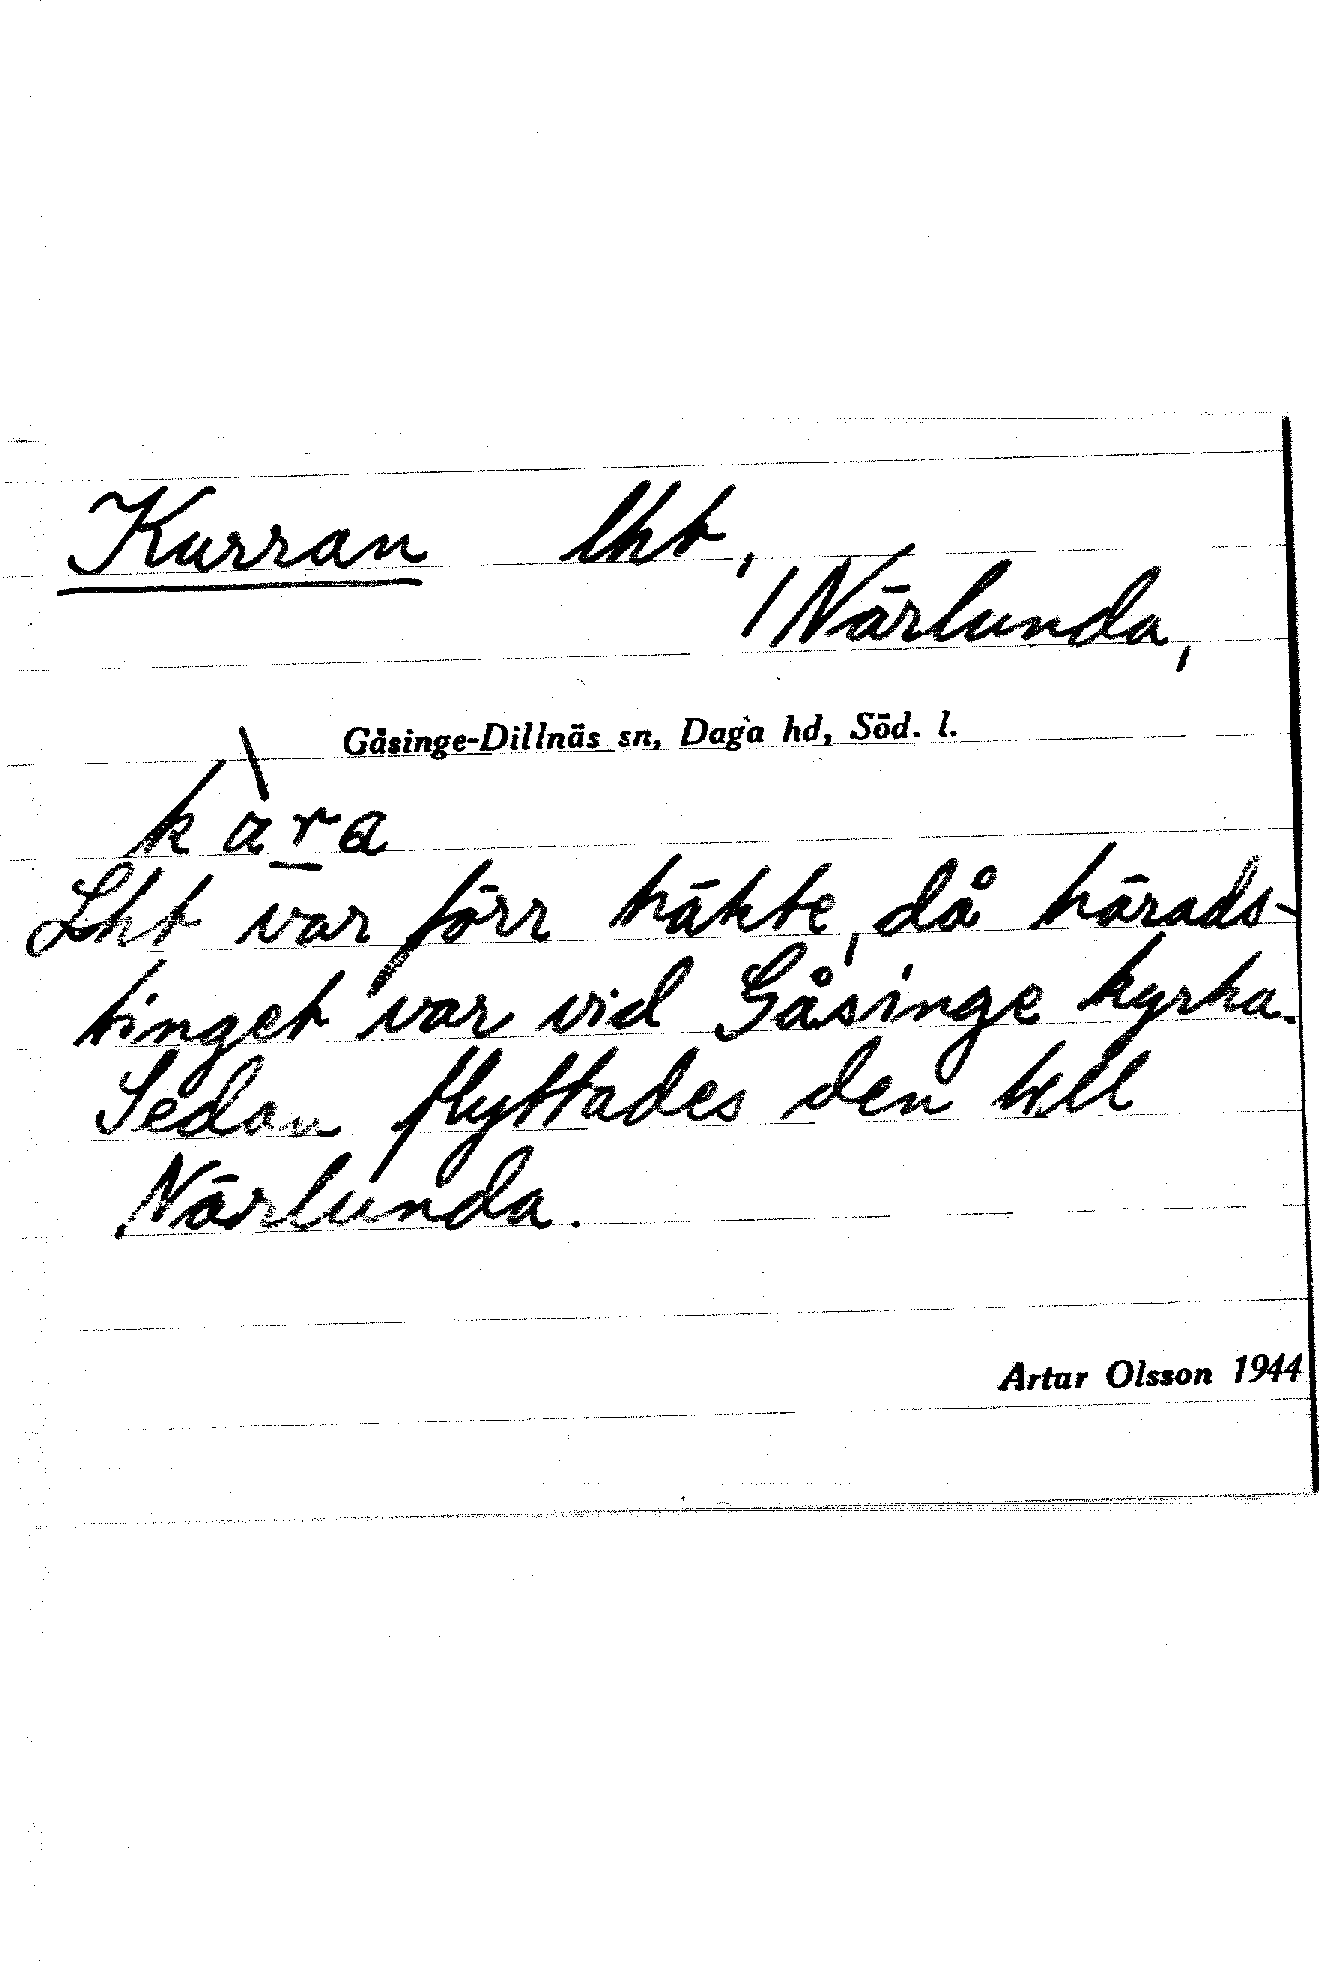 Kurran lht,
/ Närlunda,
Gåsinge-Dillnäs sn, Daga hd, Söd. l.
kàra
Lht var förr häkte, då härads-
tinget var vid Gåsinge kyrka.
Sedan flyttades den till
Närlunda.
Artur Olsson 1944